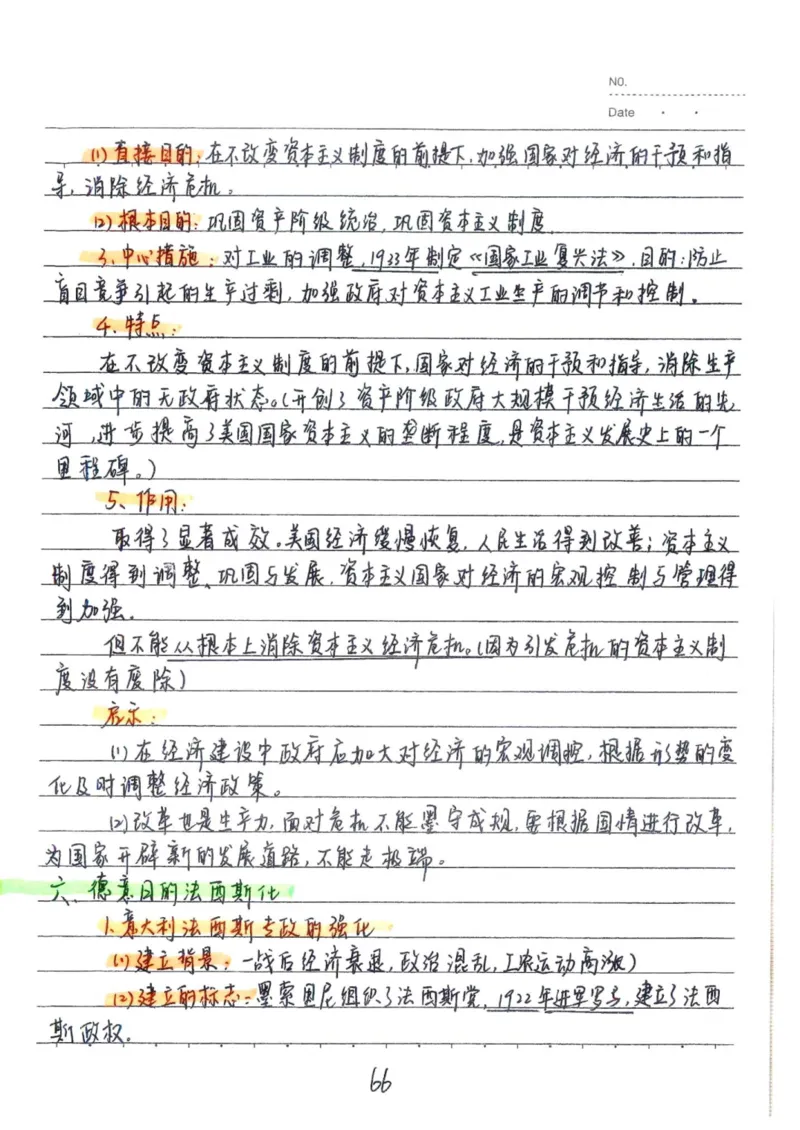 NO.
Date
(1)直接目的:在不改变资本主义制度的前提下,加强国家对经济的干预和指
导,消除经济危机。
(2)根本目的:巩固资产阶级统治,巩固资本主义制度
3、中心措施:对工业的调整,1933年制定《国家工业复兴法》,目的:防止
盲目竞争引起的生产过剩,加强政府对资本主义工业生产的调节和控制。
4、特点:
在不改变资本主义制度的前提下,国家对经济的干预和指导,消除生产
领域中的无政府状态。(开创了资产阶级政府大规模干预经济生活的先
河,进步提高了美国国家资本主义的垄断程度,是资本主义发展史上的一个
里程碑。)
5、作用:
取得了显著成效。美国经济缓慢恢复,人民生活得到改善;资本主义
制度得到调整、巩固与发展,资本主义国家对经济的宏观控制与管理得
到加强.
但不能从根本上消除资本主义经济危机。(因为引发危机的资本主义制
度没有废除)
启示:
(1)在经济建设中政府应加大对经济的宏观调控,根据形势的变
化及时调整经济政策。
(2)改革也是生产力,面对危机不能墨守成规,要根据国情进行改革,
为国家开辟新的发展道路,不能走极端。
六、德意日的法西斯化
1、意大利法西斯专政的强化
(1)建立背景:一战后经济衰退,政治混乱,工农运动高涨)
(2)建立的标志:墨索里尼组织了法西斯党,1922年进军罗马,建立了法西
斯政权。
66